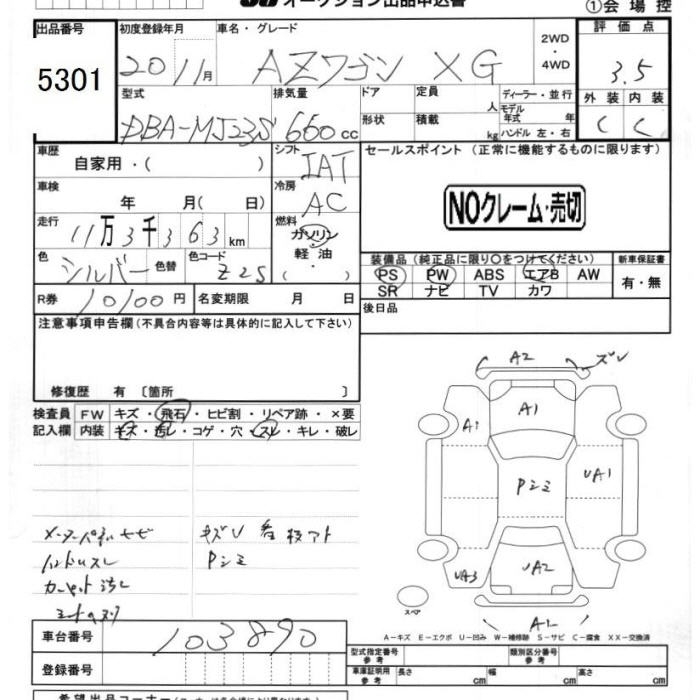 オークション出品申込書
①会場控
出品番号 初度登録年月 車名・グレード 評価点
5301 20 11月 AZワゴン XG 2WD・4WD 3.5
型式 排気量 ドア 定員 人 ディーラー・並行 外装 内装
DBA-MJ23S 660cc 形状 積載 kg モデル年式 年 C C
ハンドル 左・右
車歴 自家用・( ) シフト IAT セールスポイント (正常に機能するものに限ります)
車検 年 月( 日) 冷房 AC NOクレーム・売切
走行 11万3千363km 燃料 ガソリン・軽油・( )
色 シルバー 色替 色コード Z2S
装備品(純正品に限り○をつけてください) 新車保証書
PS PW ABS エアB AW 有・無
SR ナビ TV カワ
R券 10100円 名変期限 月 日 後日品
注意事項申告欄(不具合内容等は具体的に記入して下さい)
修復歴 有〔箇所 〕
検査員 FW キズ・飛石・ヒビ割・リペア跡・×要
記入欄 内装 キズ・汚レ・コゲ・穴・スレ・キレ・破レ
A2 ズレ
A1
A1
Pシミ UA1
メーターパネルキズ キズU 看板アト
ハンドルスレ Pシミ
カーペット汚レ
UA3 UA2
スペア
A1
A-キズ E-エクボ U-凹み W-補修跡 S-サビ C-腐食 XX-交換済
車台番号 103890
登録番号
型式指定番号 参考 類別区分番号 参考
車庫証明用 参考 長さ cm 幅 cm 高さ cm
希望出品コーナー